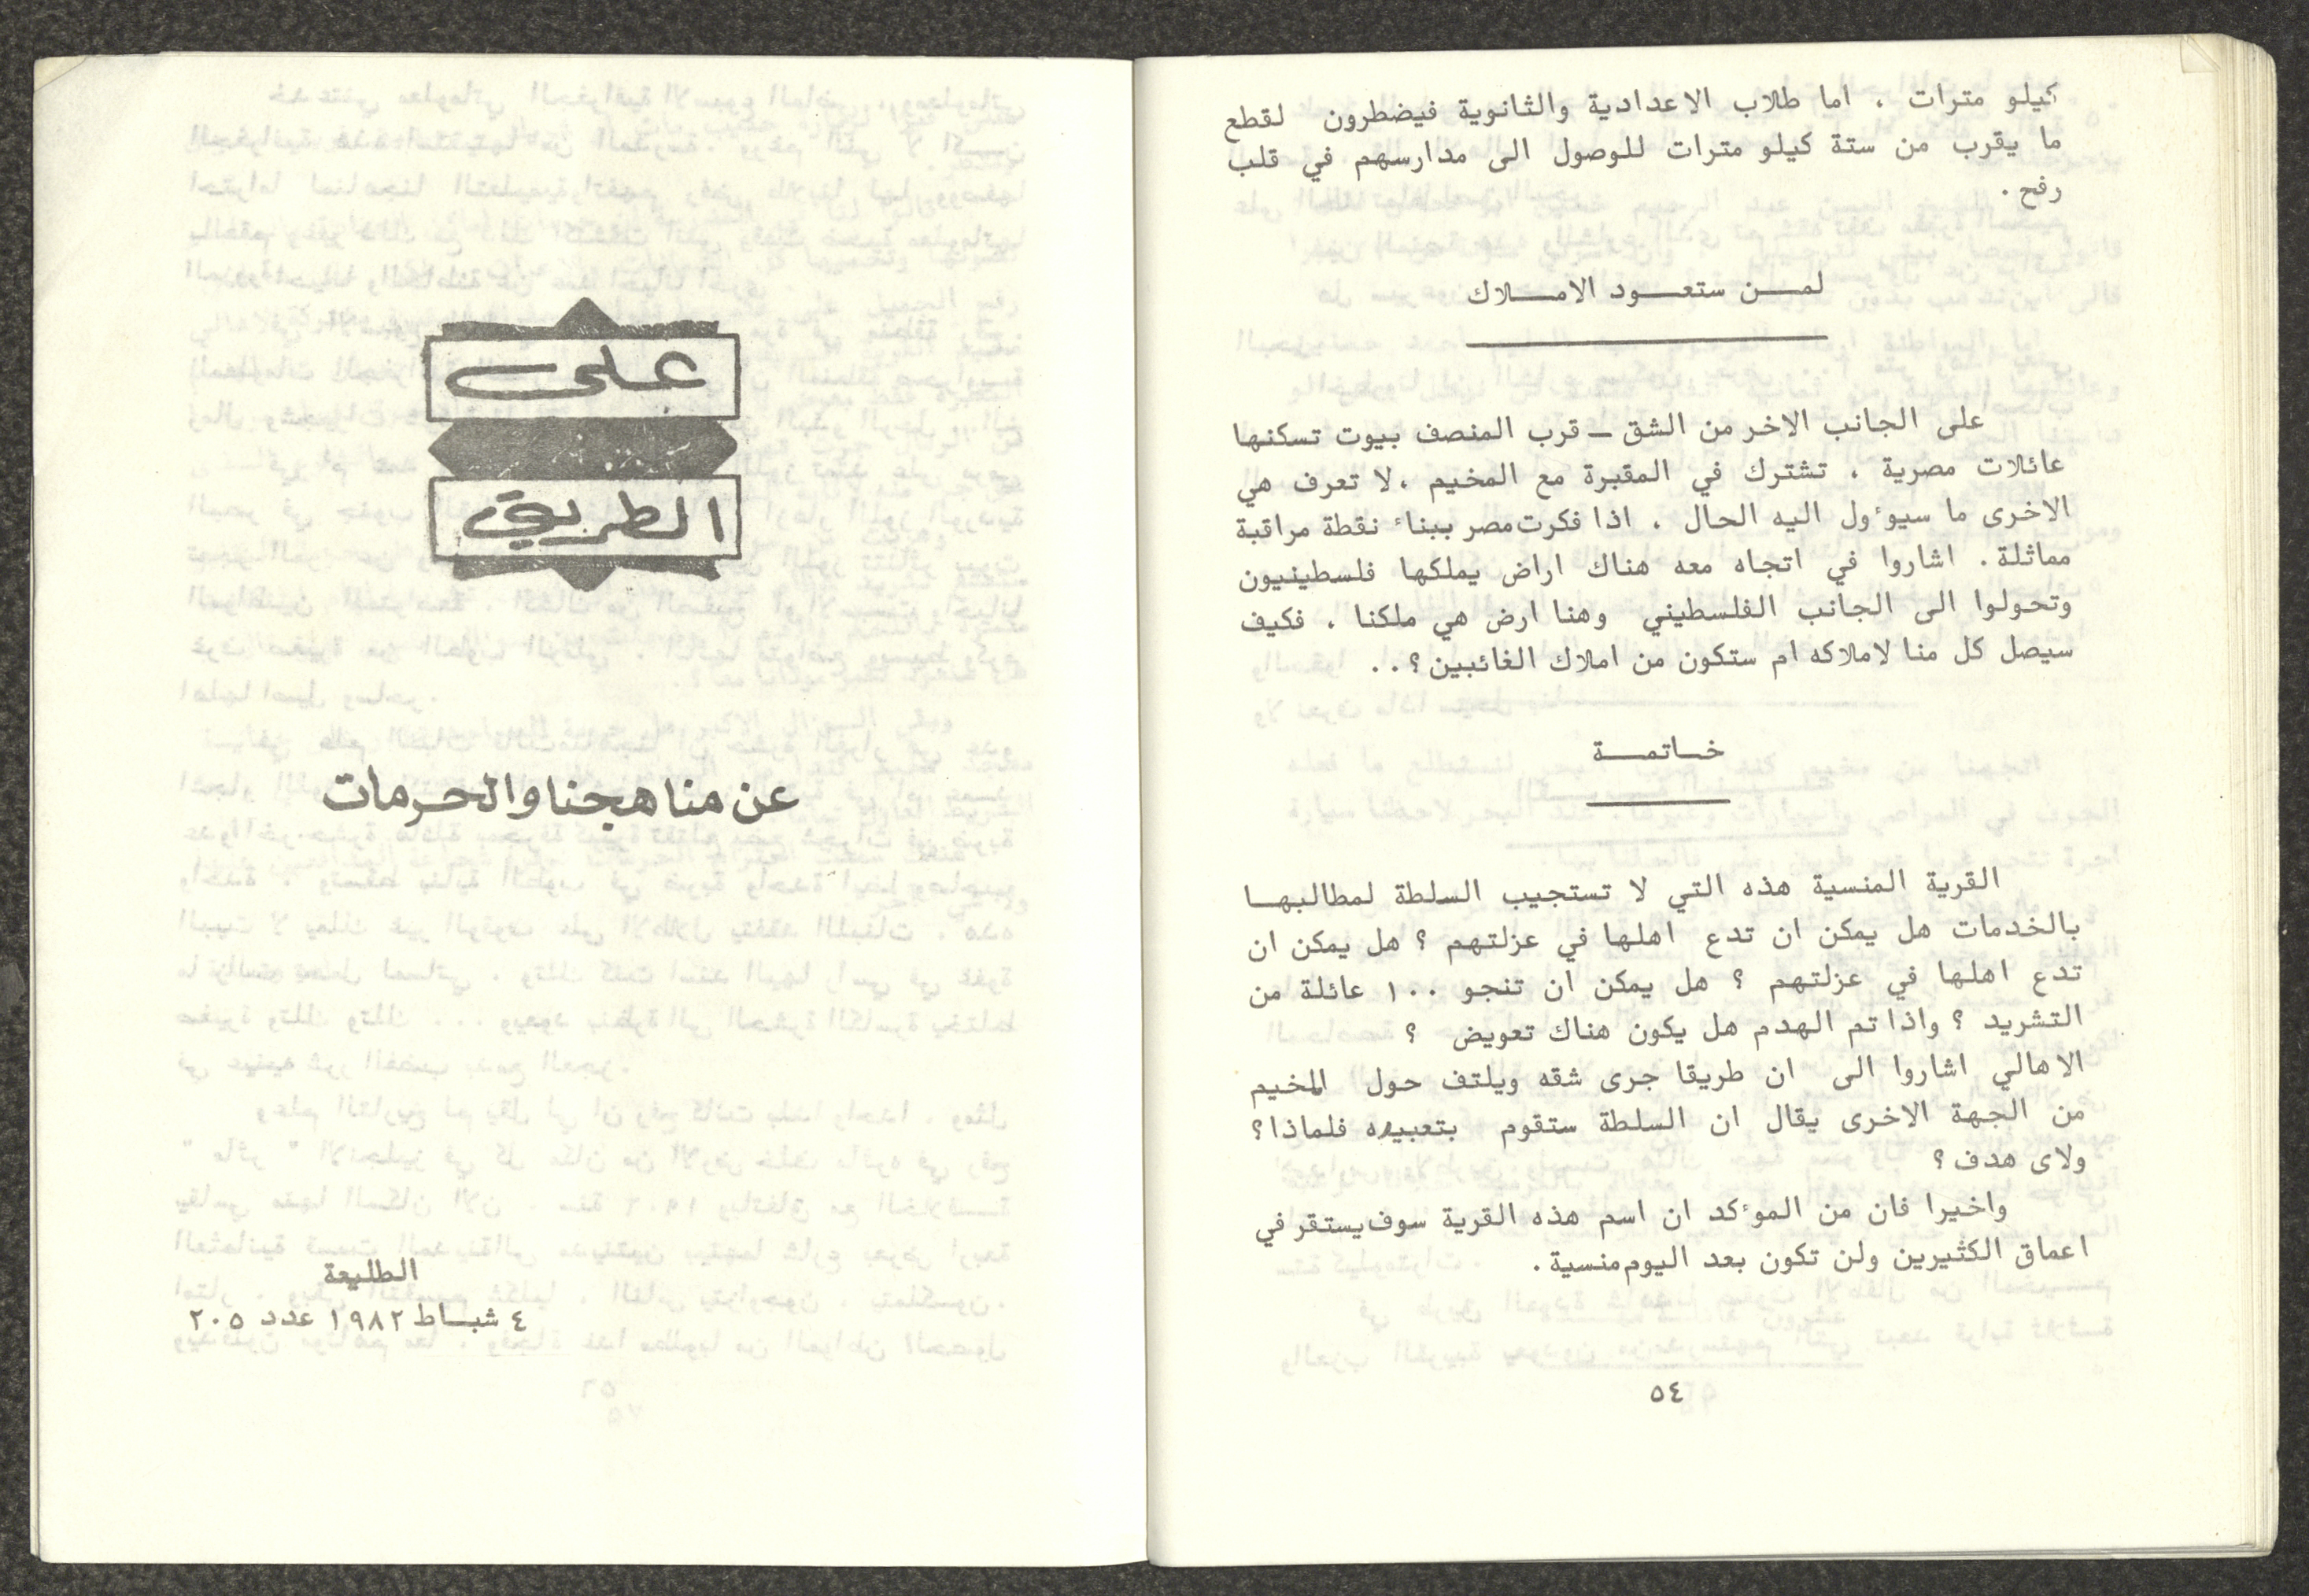 كيلو مترات ، اما طلاب الاعدادية والثانوية فيضطرون لقطع
ما يقرب من ستة كيلو مترات للوصول الى مدارسهم في قلب
رفح .
لمـــن ستعـــود الامـــلاك
على الجانب الاخر من الشق ــ قرب المنصف بيوت تسكنها
عائلات مصرية ، تشترك في المقبرة مع المخيم ، لا تعرف هي
الاخرى ما سيوءول اليه الحال ، اذا فكرت مصر ببناء نقطة مراقبة
مماثلة . اشاروا في اتجاه معه هناك اراض يملكها فلسطينيون
وتحولوا الى الجانب الفلسطيني وهنا ارض هي ملكنا ، فكيف
سيصل كل منا لاملاكه ام ستكون من املاك الغائبين ؟ . .
خــاتمــة
القرية المنسية هذه التي لا تستجيب السلطة لمطالبهــا
بالخدمات هل يمكن ان تدع اهلها في عزلتهم ؟ هل يمكن ان
تدع اهلها في عزلتهم ؟ هل يمكن ان تنجو ١٠٠ عائلة من
التشريد ؟ واذا تم الهدم هل يكون هناك تعويض ؟
الاهالي اشاروا الى ان طريقا جرى شقه ويلتف حول المخيم
من الجهة الاخرى يقال ان السلطة ستقوم بتعبيده فلماذا ؟
ولاى هدف ؟
واخيرا فان من الموءكد ان اسم هذه القرية سوف يستقر في
اعماق الكثيرين ولن تكون بعد اليوم منسية .
٥٤
على
الطريق
عن مناهجنا والحرمات
الطليعة
٤ شبــاط ١٩٨٢ عدد ٢٠٥